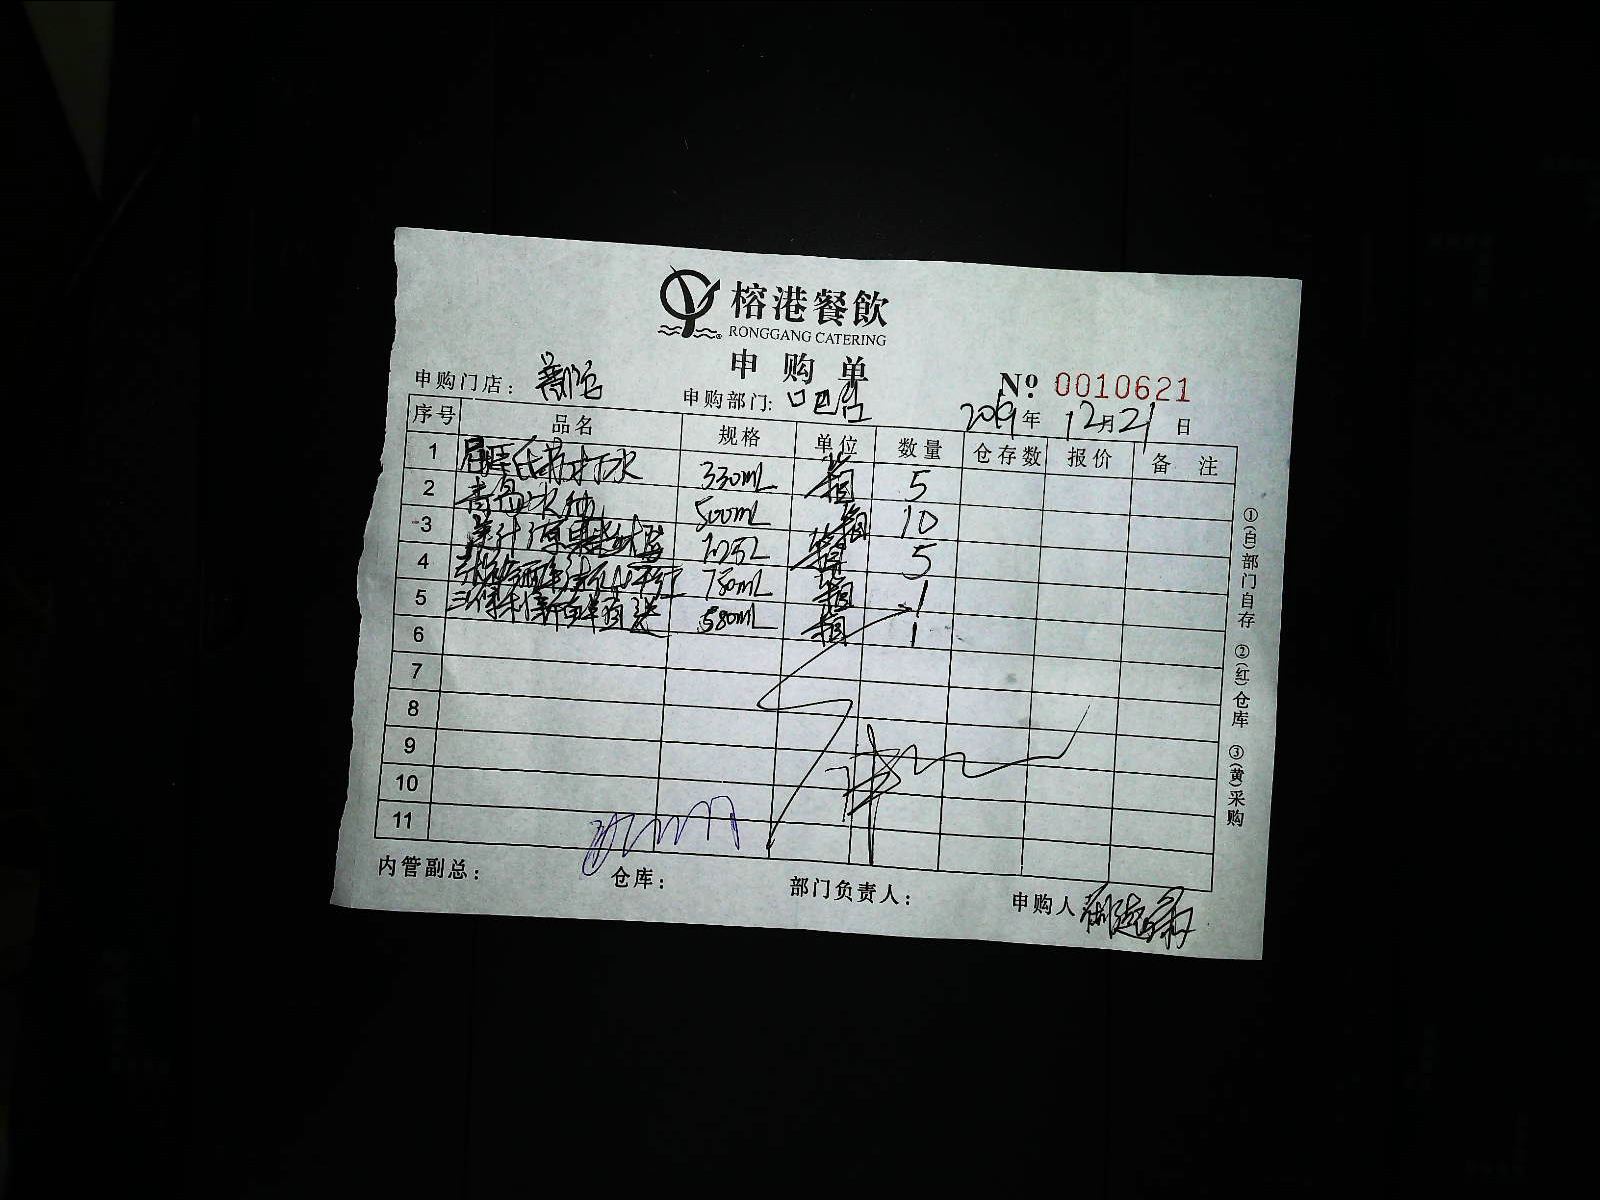 榕港餐飲
RONGGANG CATERING
申购单
申购门店： 申购部门: 吧台 № 0010621
2019年 12月21日
序号 品名 规格 单位 数量 仓存数 报价 备注
1 屈臣氏苏打水 330mL 箱 5
2 青岛冰纯 500mL 箱 10
3 箱 5
4 750mL 箱 1
5 三得利 580mL 箱 1
6
7
8
9
10
11
内管副总： 仓库： 部门负责人： 申购人
①(白)部门自存 ②(红)仓库 ③(黄)采购